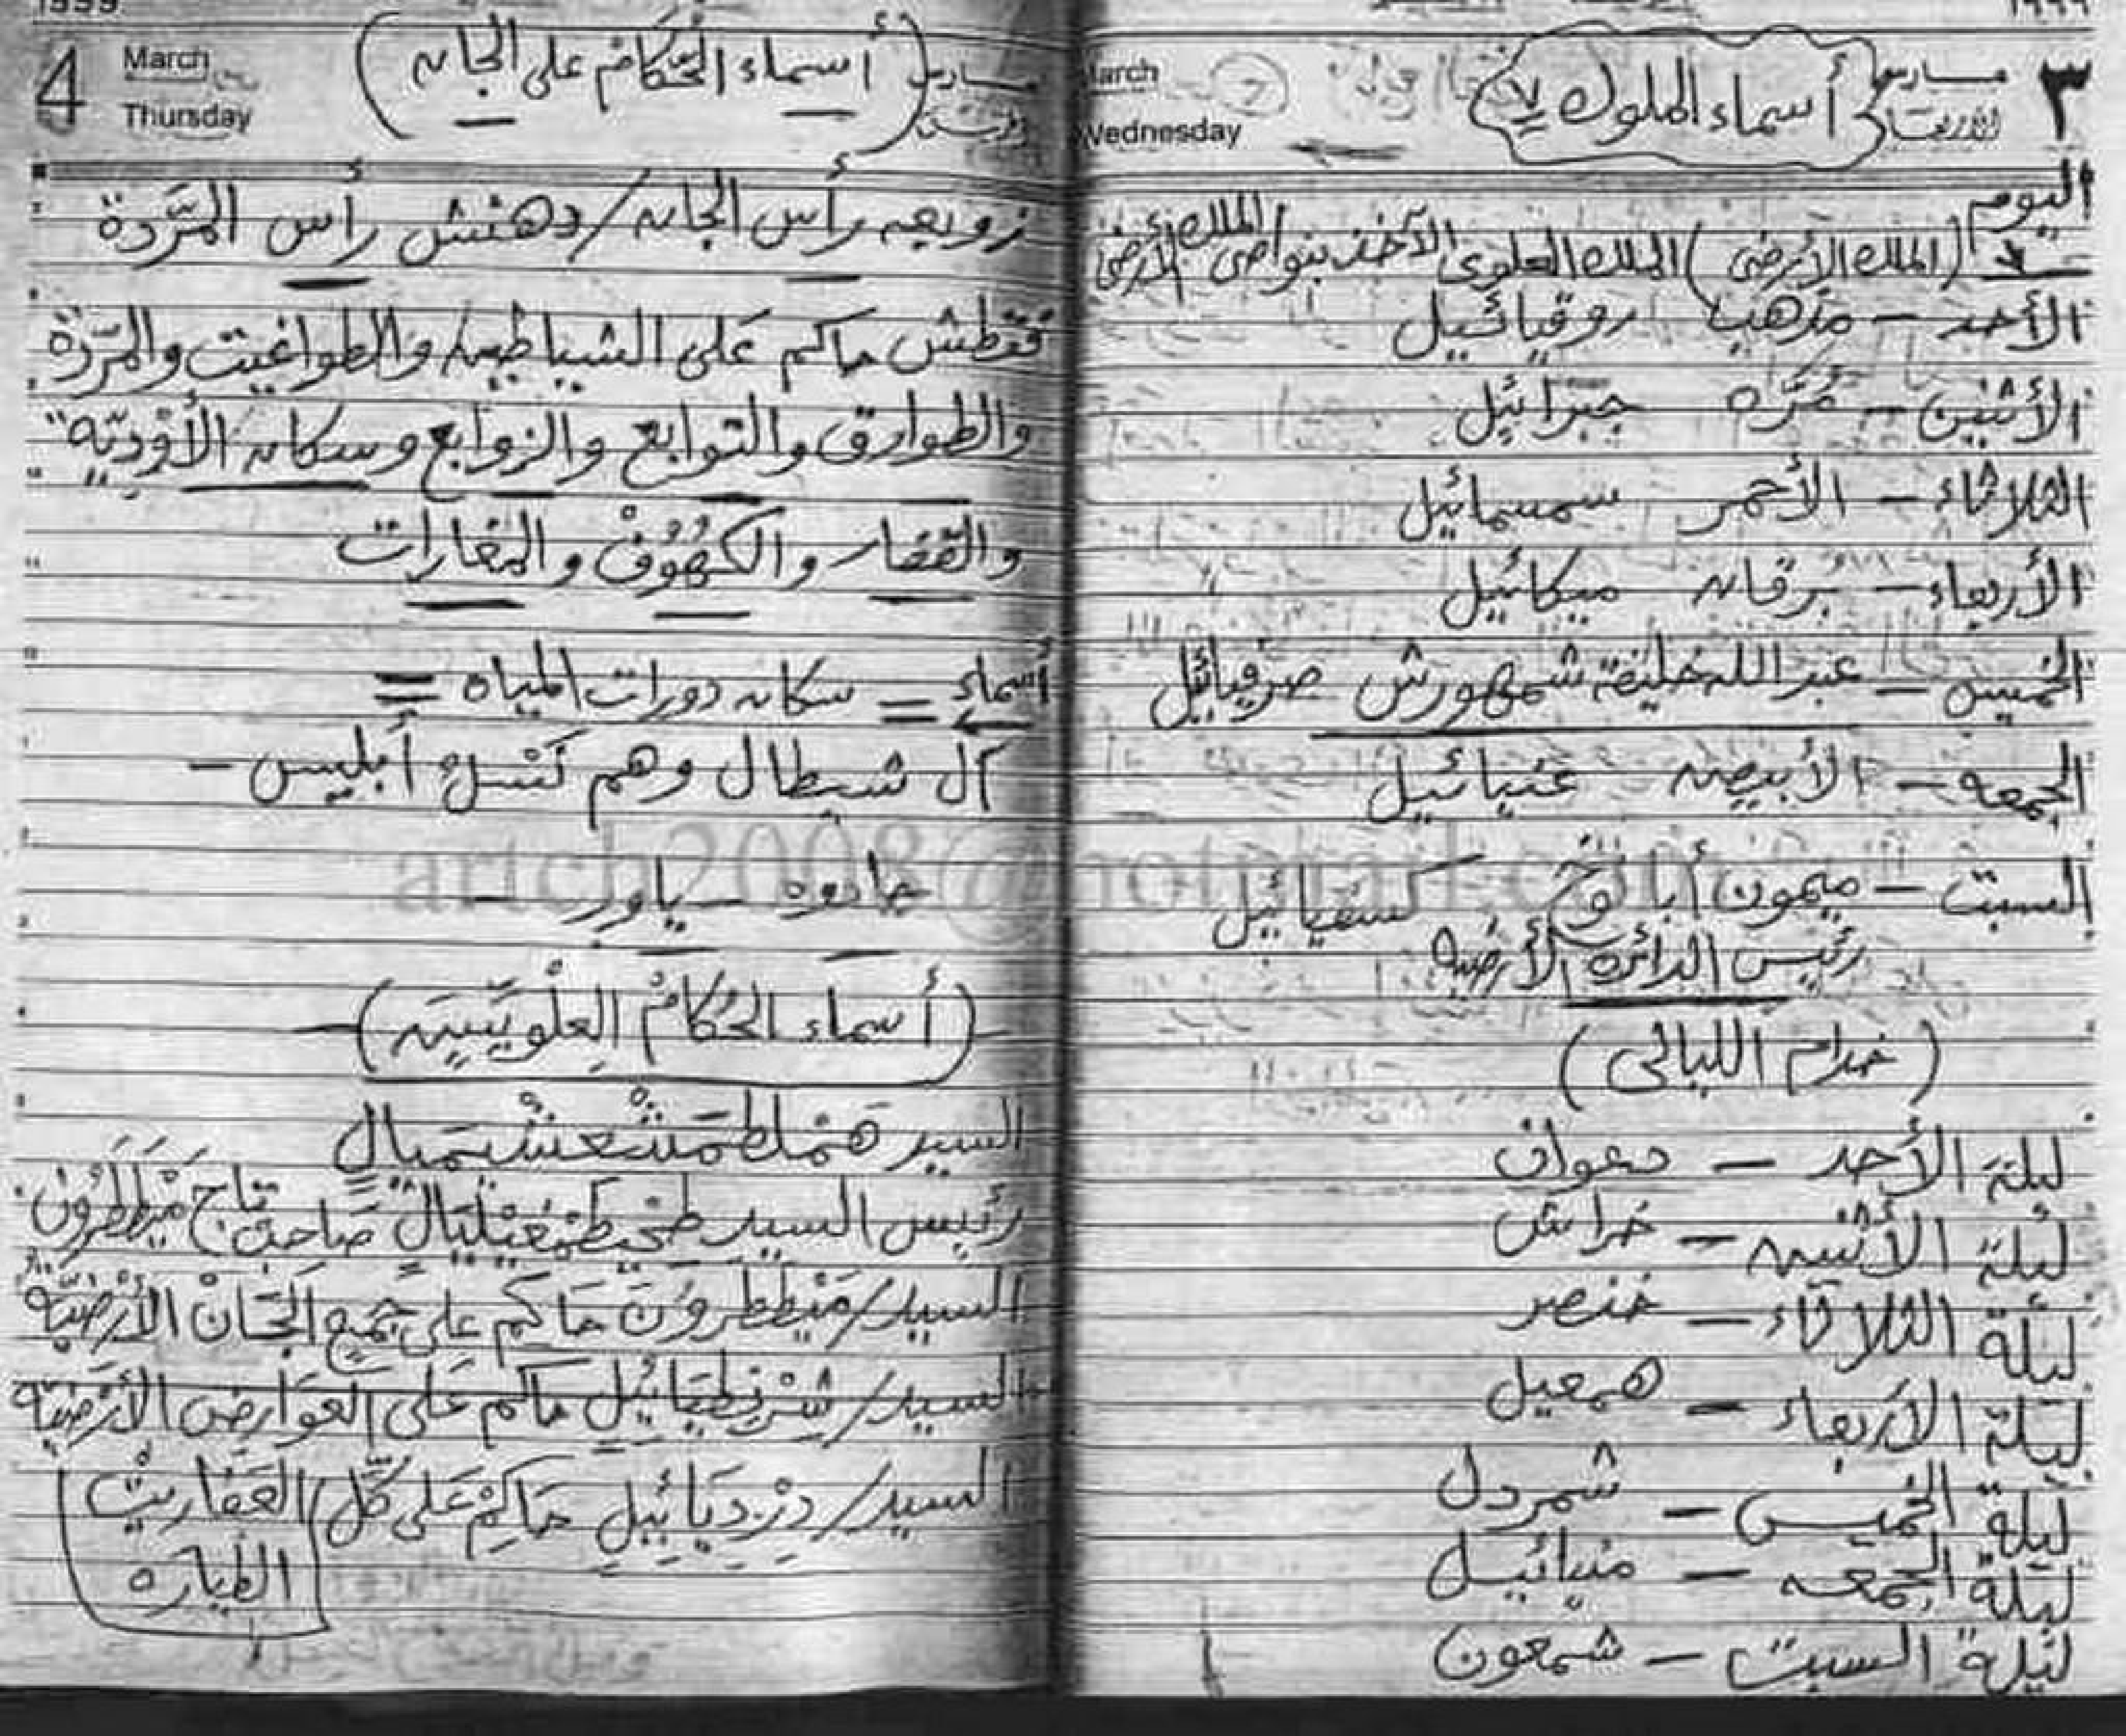 ١٩٩٩
٣ مارس الأربعاء
March
Wednesday
أسماء الملوك ٧
اليوم
(الملك الأرضى) الملك العلوى الآخذ بنواصى الملك الأرضى
الأحد - مذهب روقيائيل
الأثنين - مُرّه جبرائيل
الثلاثاء - الأحمر سمسمائيل
الأربعاء - بُرقان ميكائيل
الخميس - عبد الله خليفة شمهورش صرفيائيل
الجمعه - الأبيض عنيائيل
السبت - ميمون أبا نوخ كسفيائيل
رئيس الدائرة الأرضيه
(خدام الليالى)
ليلة الأحد - دعوان
ليلة الأثنين - خراش
ليلة الثلاثاء - خنصر
ليلة الأربعاء - همعيل
ليلة الخميس - شمردل
ليلة الجمعه - منيائيل
ليلة السبت - شمعون
1999
4 March
Thursday
مارس
(أسماء الحُكامْ على الجان)
زوبعه رأس الجان / دهنش رأس المَرَدة
فقطش حاكم عَلى الشياطين والطواغيت والمَرَدة
والطوارق والتوابع والزوابع وسكان الأوْدِيَه
والقفار والكهُوُفْ والمغارات
أسماء = سكان دورات المياه =
آل شيطال وهم نَسْل أبليس -
ياور -
(أسماء الحُكامْ العِلْويَيَين)
السيد هَمْلطمَشْعشْيمَيالٍ
رئيس السيد صاحِبْ تاج مَيْطَطَرُون
السيد / مَيْططروُنَ حَاكم عَلى جَميِع الجَانْ الأرْضيَّه
السيد / شَرْنطيَائيلِ حاكم عَلى العَوَارِضِ الأرْضيَّه
السيد / دِرْدِيَائِيلِ حَاكِمْ عَلى كُلّ العَفاريتْ
الطياره